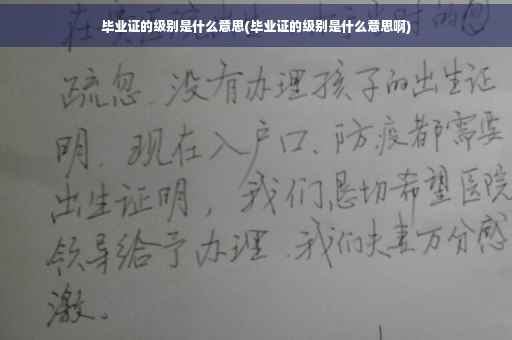 毕业证的级别是什么意思(毕业证的级别是什么意思啊)
疏忽、没有办理孩子的出生证
明、现在入户口、防疫都需要
出生证明，我们恳切希望医院
领导给予办理、我们夫妻万分感
激。